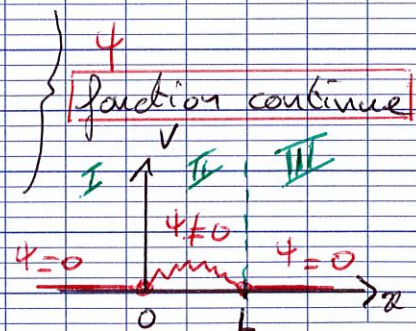 ψ
fonction continue
V
I II III
ψ≠0
ψ=0 ψ=0
x
0 L